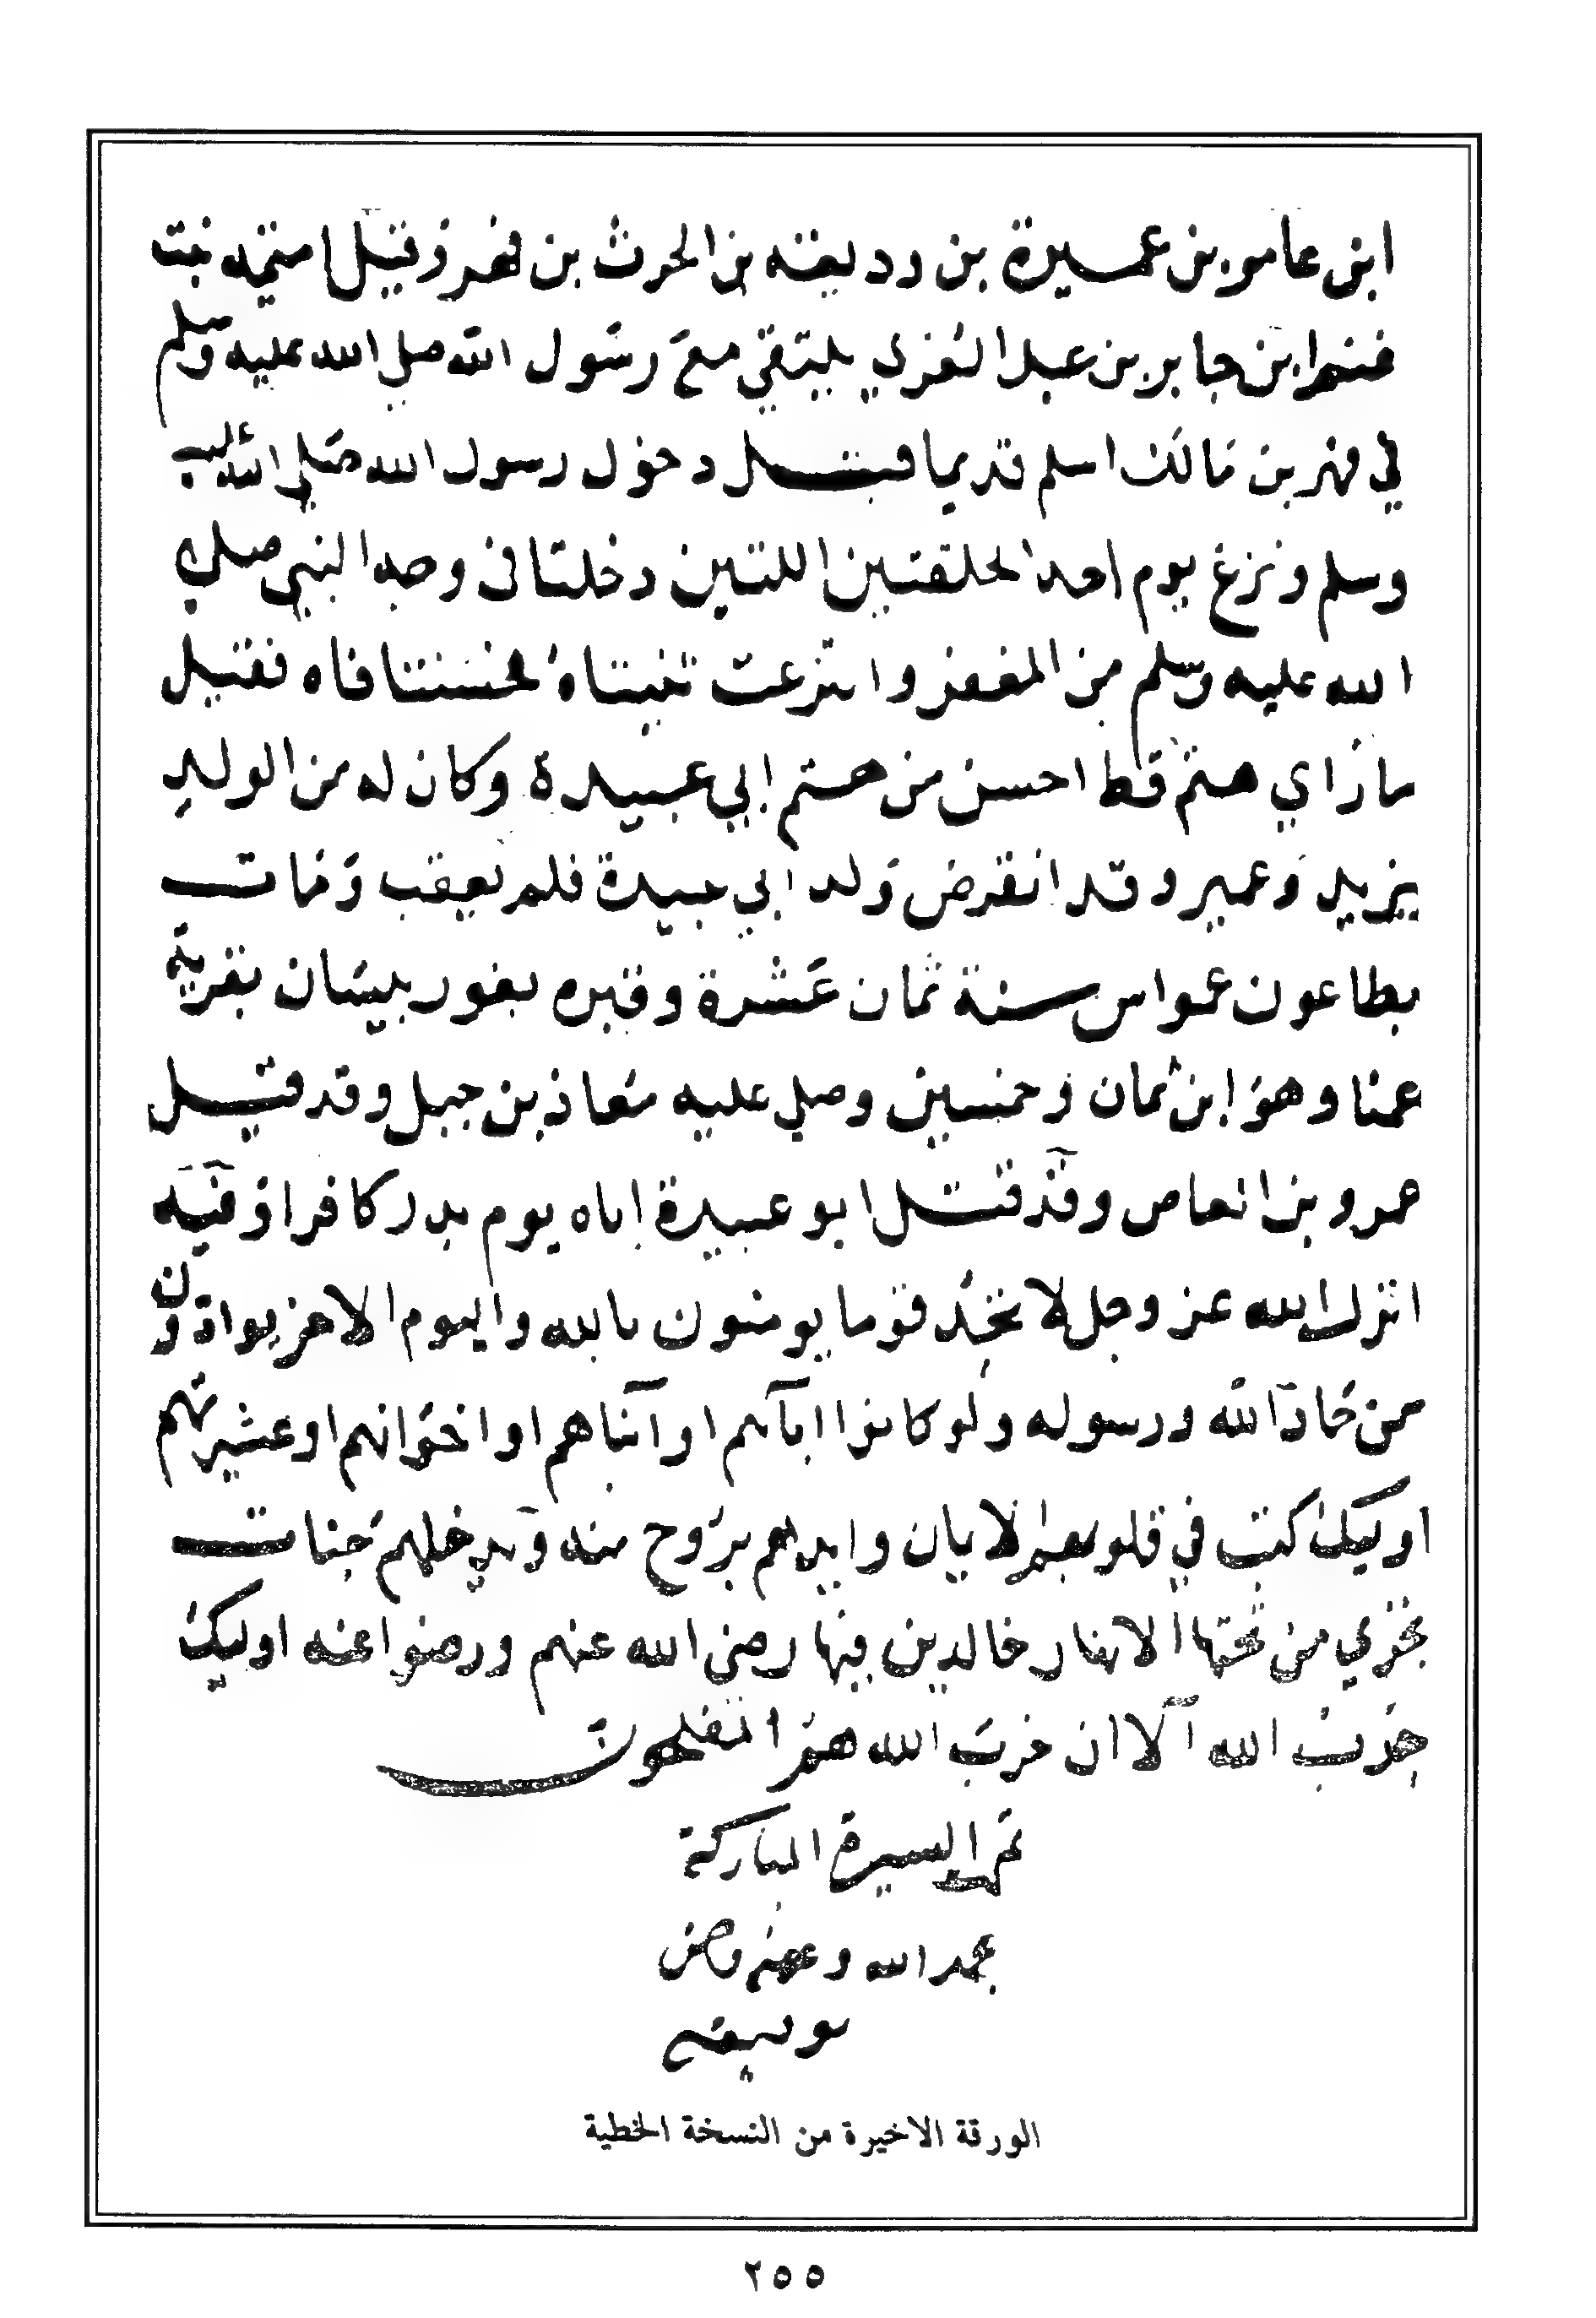 ابن عامر بن عميرة بن وديعة بن الحرث بن فهر وقيل اميمه بنت
غنم ابن جابر بن عبد العزي يلتقي مع رسول الله صلي الله عليه وسلم
في فهر بن مالك اسلم قديما قبل دخول رسول الله صلي الله عليه
وسلم ونزع يوم احد الحلقتين اللتين دخلتا في وجه النبي صلي
الله عليه وسلم من المغفر وانتزعت ثنيتاه فحسنتا فاه فقيل
ما راي هتم قط احسن من هتم ابي عبيدة وكان له من الولد
يزيد وعمير وقد انقرض ولد ابي عبيدة فلم يعقب ومات
بطاعون عمواس سنة ثمان عشرة وقبره بغور بيسان بقرية
عمتا وهو ابن ثمان وخمسين وصلي عليه معاذ بن جبل وقد قيل
عمرو بن العاص وقد قتل ابو عبيدة اباه يوم بدر كافرا وفيه
انزل الله عز وجل لا تجد قوما يومنون بالله واليوم الاخر يوادون
من حاد الله ورسوله ولو كانوا اباهم او ابناهم او اخوانهم او عشيرتهم
اوليك كتب في قلوبهم الايمان وايدهم بروح منه ويدخلهم جنات
تجري من تحتها الانهار خالدين فيها رضي الله عنهم ورضوا عنه اوليك
حزب الله الا ان حزب الله هم المفلحون
تمت السيرة المباركة
بحمد الله وعونه وحسن
توفيقه
الورقة الاخيرة من النسخة الخطية
٢٥٥